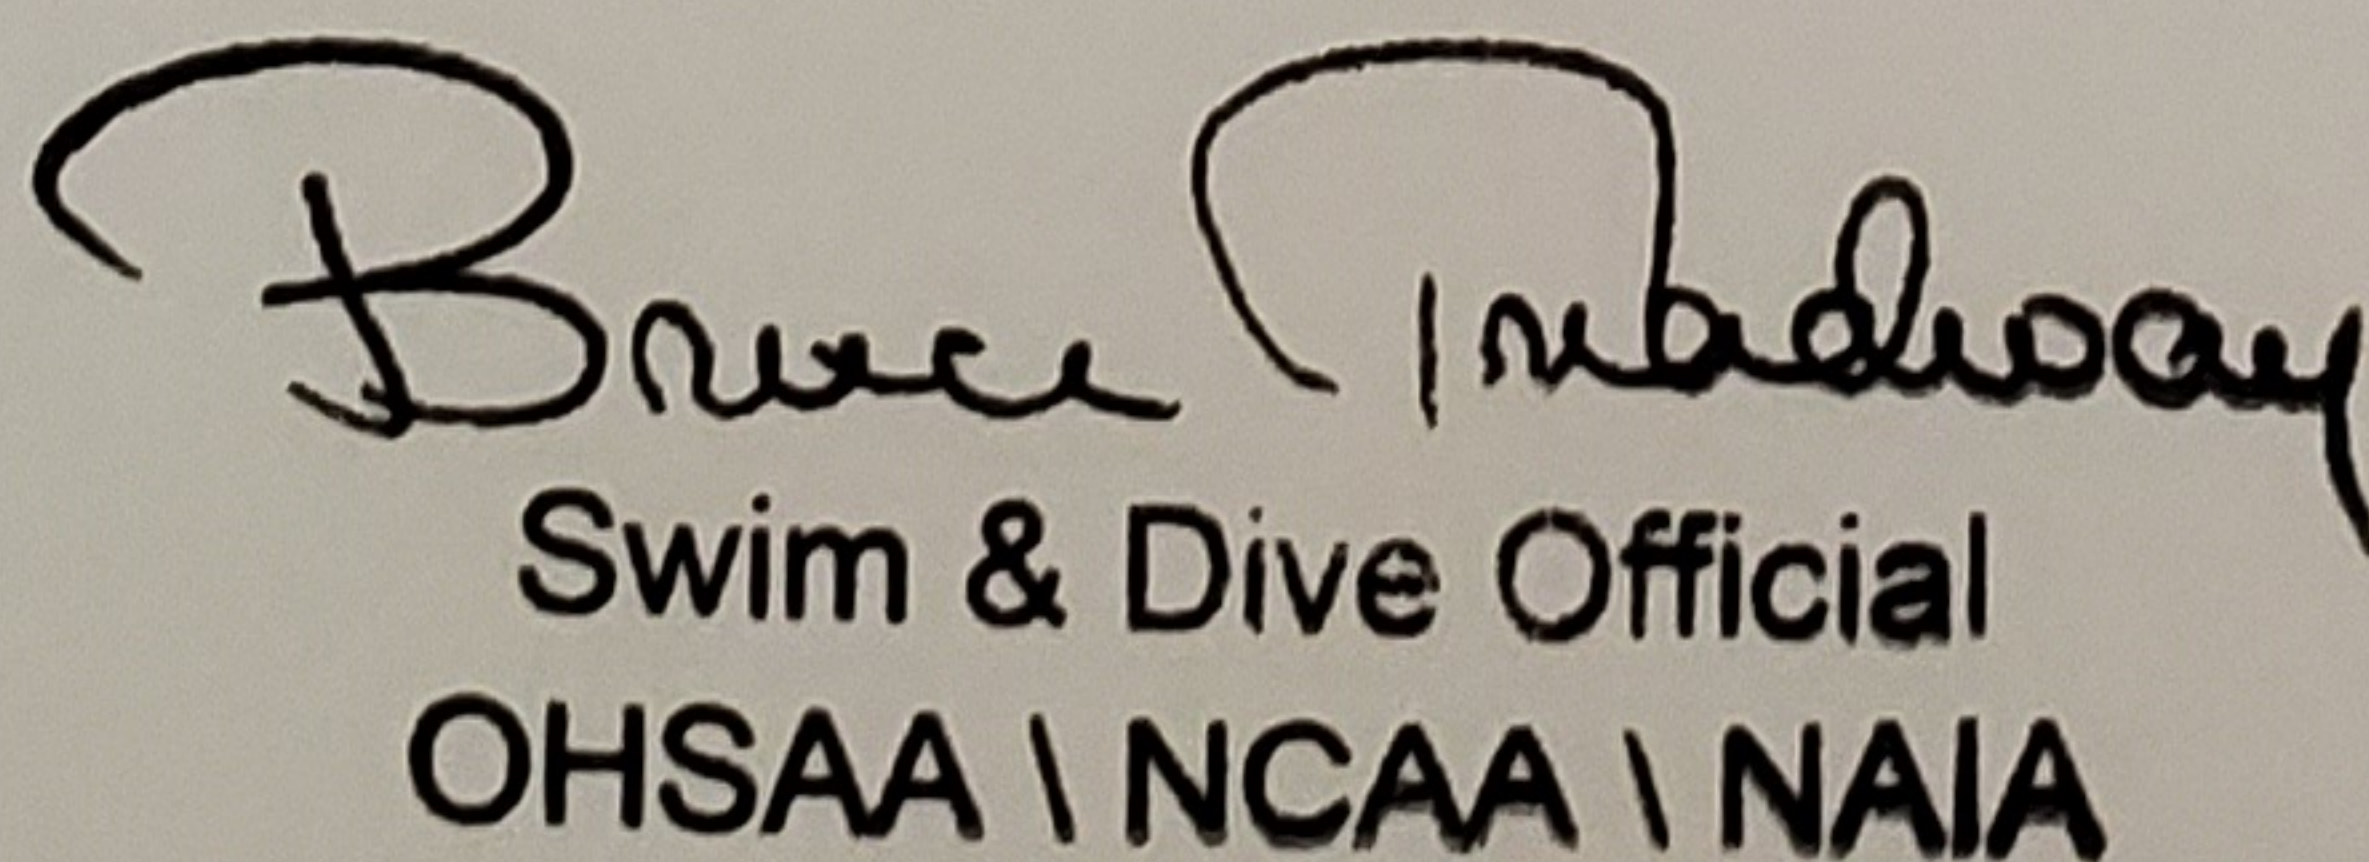 Bruce Treadway
Swim & Dive Official
OHSAA \ NCAA \ NAIA